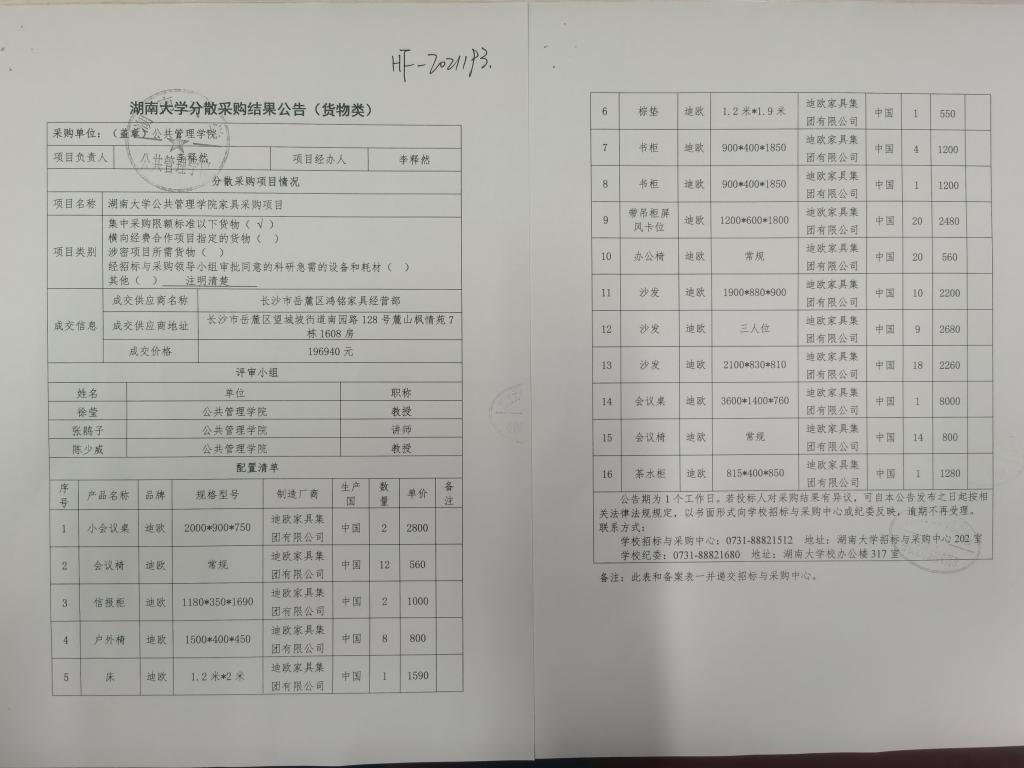 HF-2021193.
湖南大学分散采购结果公告（货物类）
采购单位：（盖章）公共管理学院
项目负责人 李释然 项目经办人 李释然
分散采购项目情况
项目名称 湖南大学公共管理学院家具采购项目
项目类别
集中采购限额标准以下货物（ √ ）
横向经费合作项目指定的货物（ ）
涉密项目所需货物（ ）
经招标与采购领导小组审批同意的科研急需的设备和耗材（ ）
其他（ ） 注明清楚
成交信息
成交供应商名称 长沙市岳麓区鸿铭家具经营部
成交供应商地址 长沙市岳麓区望城坡街道南园路 128 号麓山枫情苑 7
栋 1608 房
成交价格 196940 元
评审小组
姓名 单位 职称
徐莹 公共管理学院 教授
张鹃子 公共管理学院 讲师
陈少威 公共管理学院 教授
配置清单
序号 产品名称 品牌 规格型号 制造厂商 生产国 数量 单价 备注
1 小会议桌 迪欧 2000*900*750 迪欧家具集团有限公司 中国 2 2800
2 会议椅 迪欧 常规 迪欧家具集团有限公司 中国 12 560
3 信报柜 迪欧 1180*350*1690 迪欧家具集团有限公司 中国 2 1000
4 户外椅 迪欧 1500*400*450 迪欧家具集团有限公司 中国 8 800
5 床 迪欧 1.2 米*2 米 迪欧家具集团有限公司 中国 1 1590
6 棕垫 迪欧 1.2 米*1.9 米 迪欧家具集团有限公司 中国 1 550
7 书柜 迪欧 900*400*1850 迪欧家具集团有限公司 中国 4 1200
8 书柜 迪欧 900*400*1850 迪欧家具集团有限公司 中国 1 1200
9 带吊柜屏风卡位 迪欧 1200*600*1800 迪欧家具集团有限公司 中国 20 2480
10 办公椅 迪欧 常规 迪欧家具集团有限公司 中国 20 560
11 沙发 迪欧 1900*880*900 迪欧家具集团有限公司 中国 10 2200
12 沙发 迪欧 三人位 迪欧家具集团有限公司 中国 9 2680
13 沙发 迪欧 2100*830*810 迪欧家具集团有限公司 中国 18 2260
14 会议桌 迪欧 3600*1400*760 迪欧家具集团有限公司 中国 1 8000
15 会议椅 迪欧 常规 迪欧家具集团有限公司 中国 14 800
16 茶水柜 迪欧 815*400*850 迪欧家具集团有限公司 中国 1 1280
公告期为 1 个工作日。若投标人对采购结果有异议，可自本公告发布之日起按相
关法律法规规定，以书面形式向学校招标与采购中心或纪委反映，逾期不再受理。
联系方式：
学校招标与采购中心：0731-88821512 地址：湖南大学招标与采购中心 202 室
学校纪委：0731-88821680 地址：湖南大学校办公楼 317 室
备注：此表和备案表一并递交招标与采购中心。